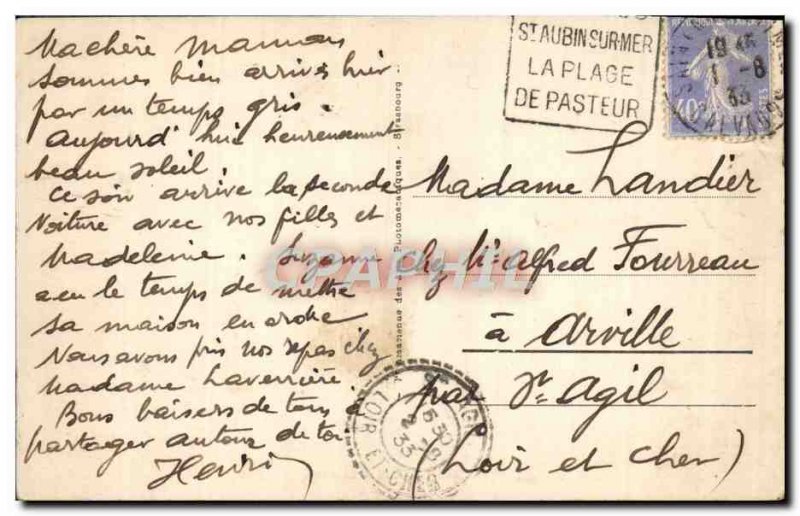 Ma chère maman
sommes bien arrivés hier
par un temps gris.
Aujourd'hui heureusement
beau soleil.
Ce soir arrive la seconde
voiture avec nos filles et
Madeleine. Suzanne
a eu le temps de mettre
sa maison en ordre
Nous avons pris nos repas chez
Madame Laverrière.
Bons baisers de tous à
partager autour de toi
Henri
Photomécaniques. - Strasbourg
ST AUBIN SUR MER
LA PLAGE
DE PASTEUR
19 45
1 -8
33
CALVADOS
40
Madame Landier
chez Mr Alfred Fourreau
à Arville
par St Agil
(Loir et Cher)
ST AGIL
5 30
2 -8
33
LOIR ET CHER
CPAPHIL